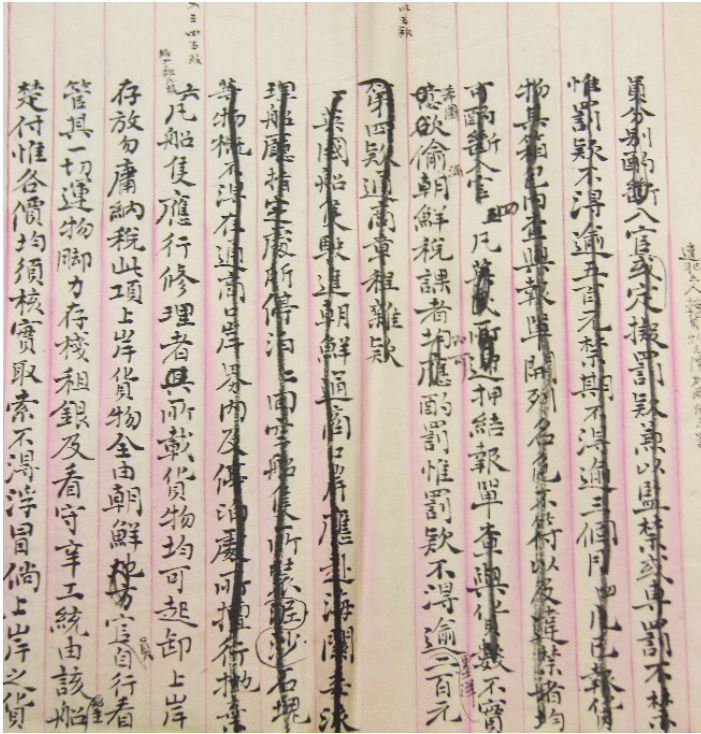 員分別酌斷入官或定擬罰欵兼以監禁或專罰不禁
惟罰欵不得逾五百元禁期不得逾三個月四凡已報貨
物其箱包內查與報單開列名色不符以及違禁者均
可酌斷入官 四凡 遞押結報單查與貨數不實
意欲偷朝鮮稅課者均應酌罰惟罰欵不得逾二百元
第四欵通商章程雜欵
一英國船隻駛進朝鮮通商口岸應赴海關委派
理船廳指定處所停泊二同 船隻所 沙石塊
等物概不得在通商口岸界內及停泊處所擅行拋棄
六凡船隻應行修理者其所載貨物均可起卸上岸
存放勿庸納稅此項上岸貨物全由朝鮮地方官自行看
管其一切運物腳力存棧租銀及看守辛工統由該船
楚付惟各價均須核實取索不得浮冒倘上岸之貨